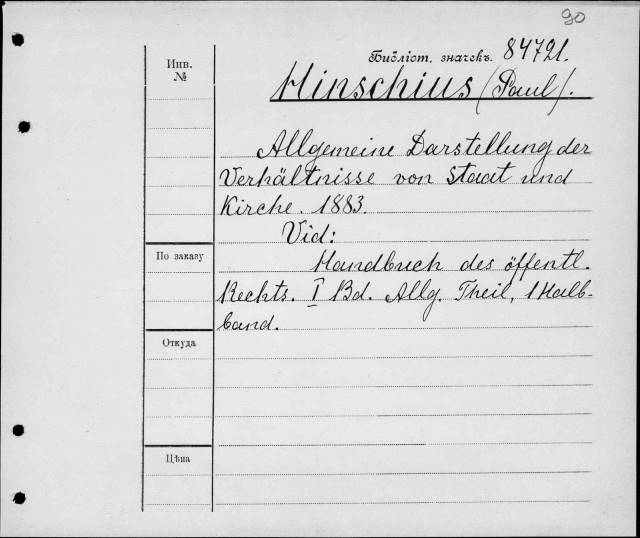 90
Инв.
№
Библіот. значекъ. 84721.
Hinschius (Paul).
Allgemeine Darstellung der
Verhältnisse von Staat und
Kirche. 1883.
Vid:
По заказу
Handbuch des öffentl.
Rechts. I Bd. Allg. Theil, 1 Halb-
band.
Откуда
Цѣна